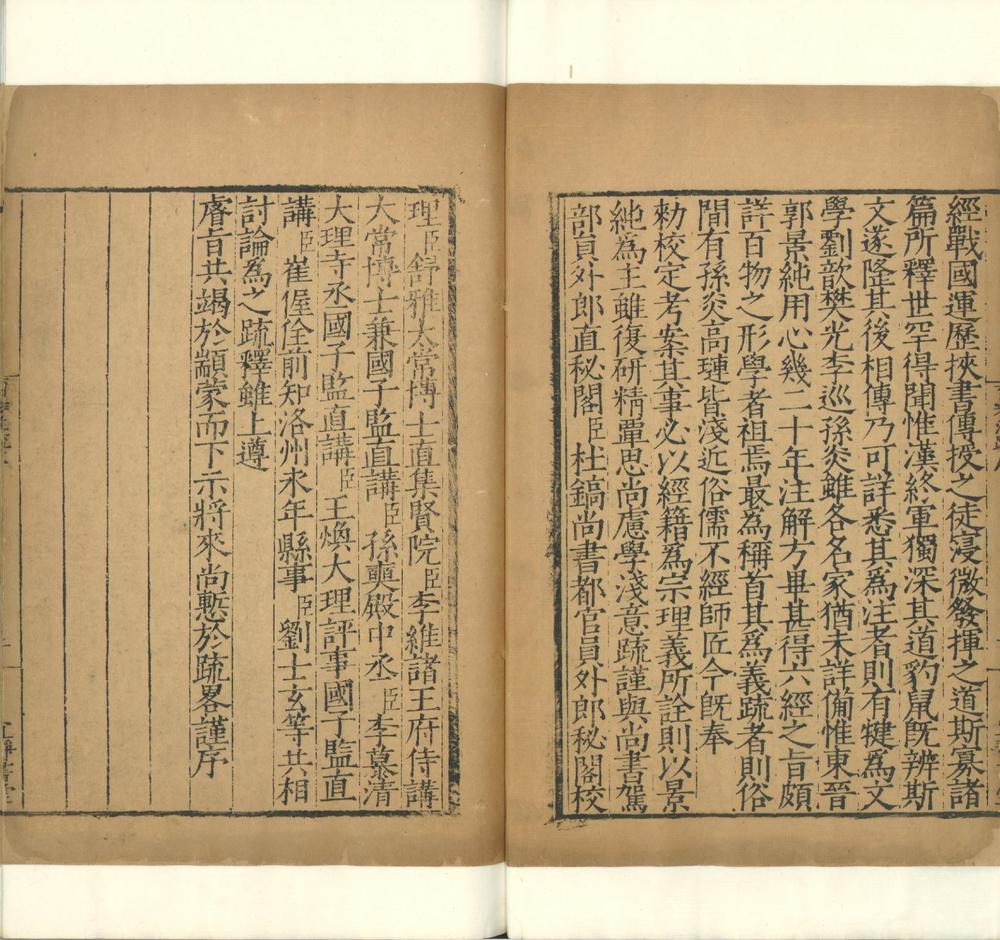 經戰國運歷挾書傳授之徒寖微發揮之道斯寡諸
篇所釋世罕得聞惟漢終軍獨深其道豹鼠旣辨斯
文遂隆其後相傳乃可詳悉其爲注者則有犍爲文
學劉歆樊光李巡孫炎雖各名家猶未詳備惟東晉
郭景純用心幾二十年注解方畢甚得六經之旨頗
詳百物之形學者祖焉最爲稱首其爲義疏者則俗
閒有孫炎高璉皆淺近俗儒不經師匠今旣奉
勑校定考案其事必以經籍爲宗理義所詮則以景
純爲主雖復研精覃思尚慮學淺意疏謹與尚書駕
部員外郎直秘閣臣杜鎬尚書都官員外郎秘閣校
理臣舒雅太常博士直集賢院臣李維諸王府侍講
太常博士兼國子監直講臣孫奭殿中丞臣李慕清
大理寺丞國子監直講臣王煥大理評事國子監直
講臣崔偓佺前知洺州永年縣事臣劉士玄等共相
討論爲之疏釋雖上遵
睿旨共竭於顓蒙而下示將來尚慙於疏畧謹序